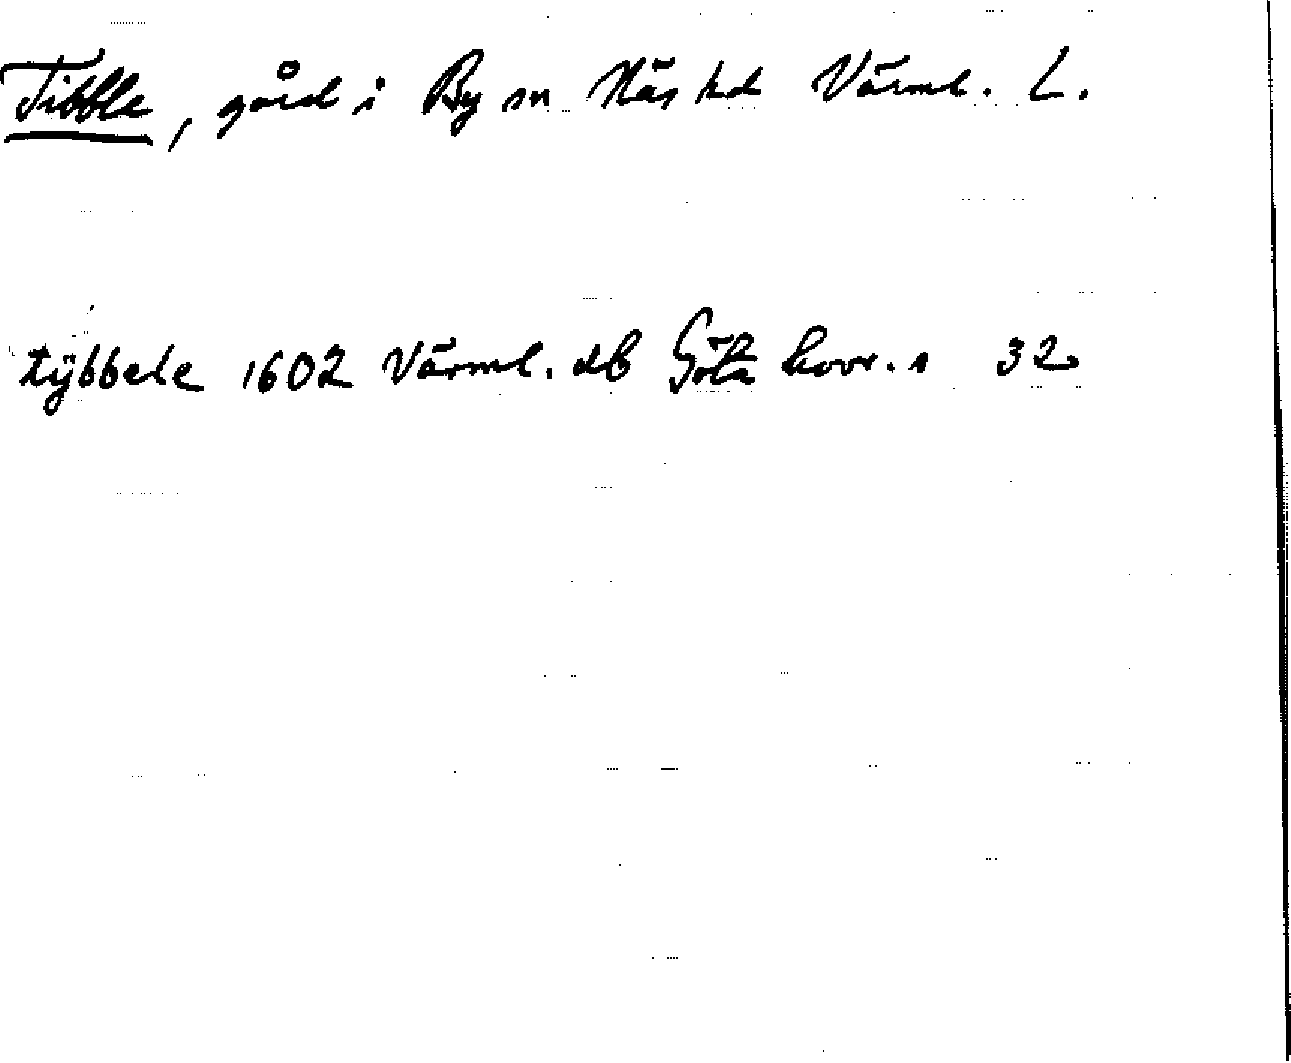 Tibble, gård i By sn Näs hd Värml. L.
tÿbbele 1602 Värml. db Göta hovr. s 32